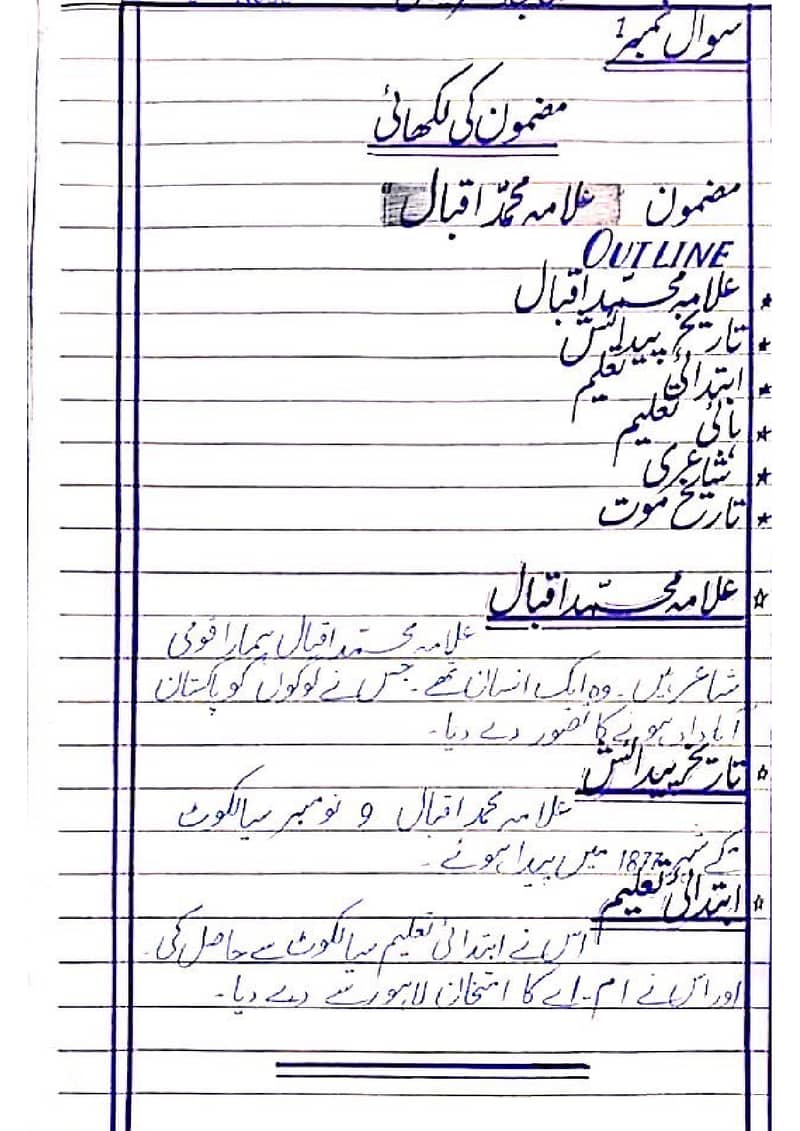 سوال نمبر 1
مضمون کی لکھائی
مضمون علامہ محمّد اقبال
OUTLINE
★ علامہ محمّد اقبال
★ تاریخ پیدائش
★ ابتدائی تعلیم
★ ہائی تعلیم
★ شاعری
★ تاریخ موت
☆ علامہ محمّد اقبال
علامہ محمّد اقبال ہمارا قومی
شاعر ہیں۔ وہ ایک انسان تھے۔ جس نے لوگوں کو پاکستان
ہونے کا تصور دے دیا۔
☆ تاریخ پیدائش
علامہ محمد اقبال 9 نومبر سیالکوٹ
کے شہر 1877 میں پیدا ہوئے۔
☆ ابتدائی تعلیم
اس نے ابتدائی تعلیم سیالکوٹ سے حاصل کی۔
اور اس نے ام۔اے کا امتحان لاہور سے دے دیا۔